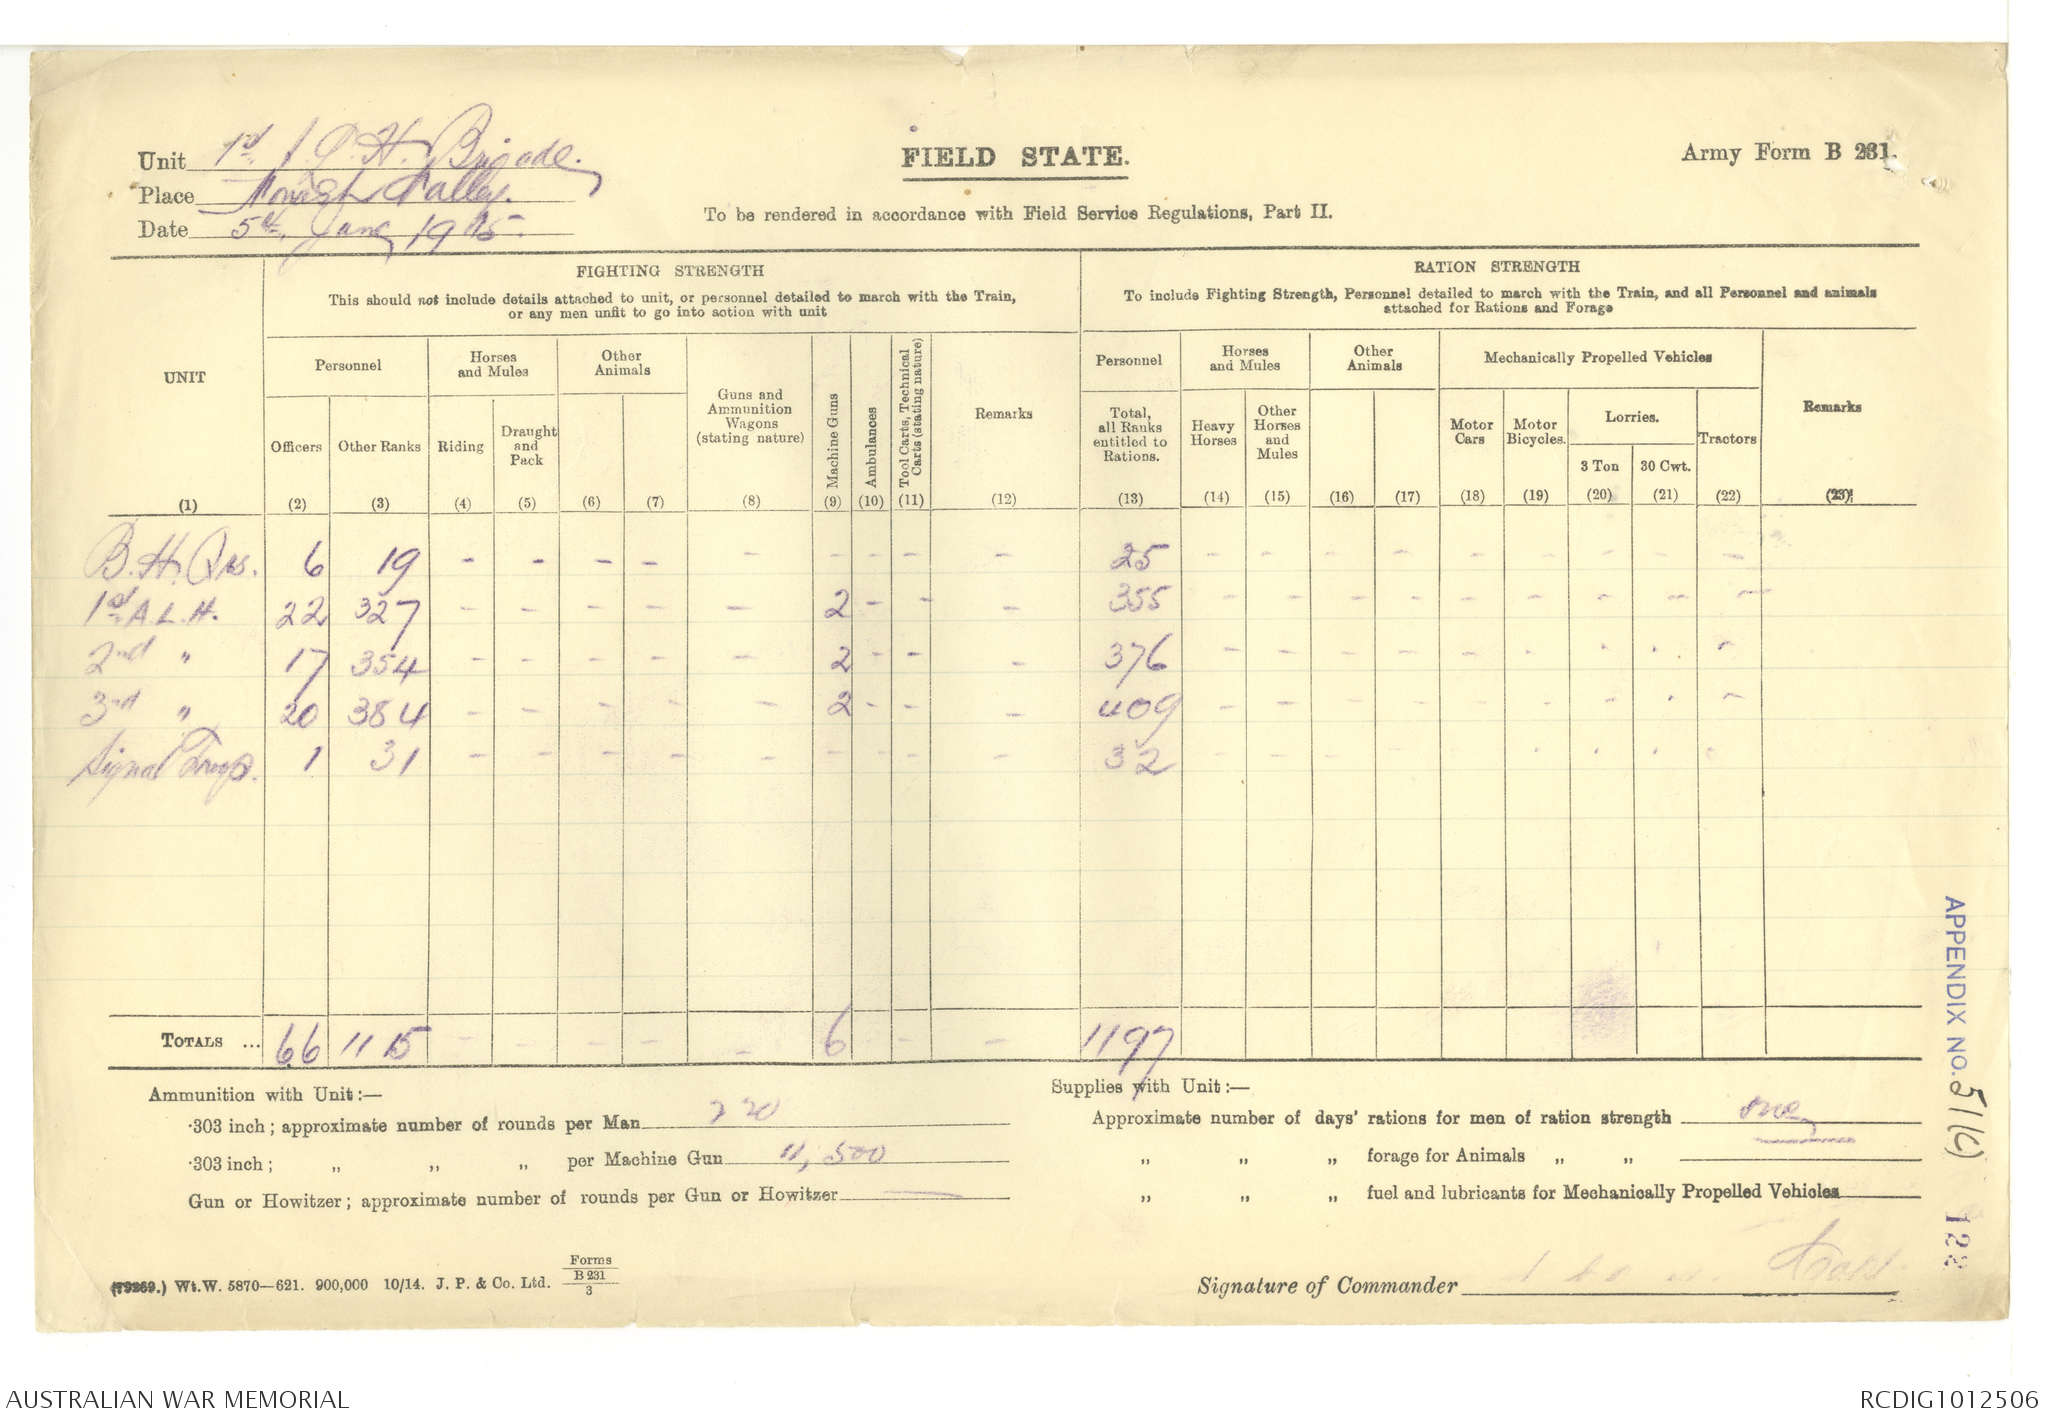 Unit 1st. A. L. H. Brigade.
FIELD STATE.
Army Form B 231.
Place Monash Valley.
Date 5th June 1915.
To be rendered in accordance with Field Service Regulations, Part II.
UNIT
FIGHTING STRENGTH
This should not include details attached to unit, or personnel detailed to march with the Train,
or any men unfit to go into action with unit
RATION STRENGTH
To include Fighting Strength, Personnel detailed to march with the Train, and all Personnel and animals
attached for Rations and Forage
Personnel
Horses and Mules
Other Animals
Guns and Ammunition Wagons (stating nature)
Machine Guns
Ambulances
Tool Carts, Technical Carts (stating nature)
Remarks
Personnel
Horses and Mules
Other Animals
Mechanically Propelled Vehicles
Remarks
Officers
Other Ranks
Riding
Draught and Pack
Total, all Ranks entitled to Rations.
Heavy Horses
Other Horses and Mules
Motor Cars
Motor Bicycles.
Lorries.
3 Ton
30 Cwt.
Tractors
(1) (2) (3) (4) (5) (6) (7) (8) (9) (10) (11) (12) (13) (14) (15) (16) (17) (18) (19) (20) (21) (22) (23)
B. H. Qrs. 6 19 - - - - - - - - - 25 - - - - - - - - -
1st A. L. H. 22 327 - - - - - 2 - - - 355 - - - - - - - - -
2nd " 17 354 - - - - - 2 - - - 376 - - - - - - - - -
3rd " 20 384 - - - - - 2 - - - 409 - - - - - - - - -
Signal Troop. 1 31 - - - - - - - - - 32 - - - - - - - - -
TOTALS ... 66 1115 - - - - - 6 - - - 1197
Ammunition with Unit:—
·303 inch; approximate number of rounds per Man 220
·303 inch; " " " per Machine Gun 11,500
Gun or Howitzer; approximate number of rounds per Gun or Howitzer —
Supplies with Unit:—
Approximate number of days' rations for men of ration strength one
" " " forage for Animals " "
" " " fuel and lubricants for Mechanically Propelled Vehicles
(79269.) Wt.W. 5870—621. 900,000 10/14. J. P. & Co. Ltd. Forms B 231 3
Signature of Commander
APPENDIX NO. 51(c)
122
AUSTRALIAN WAR MEMORIAL
RCDIG1012506